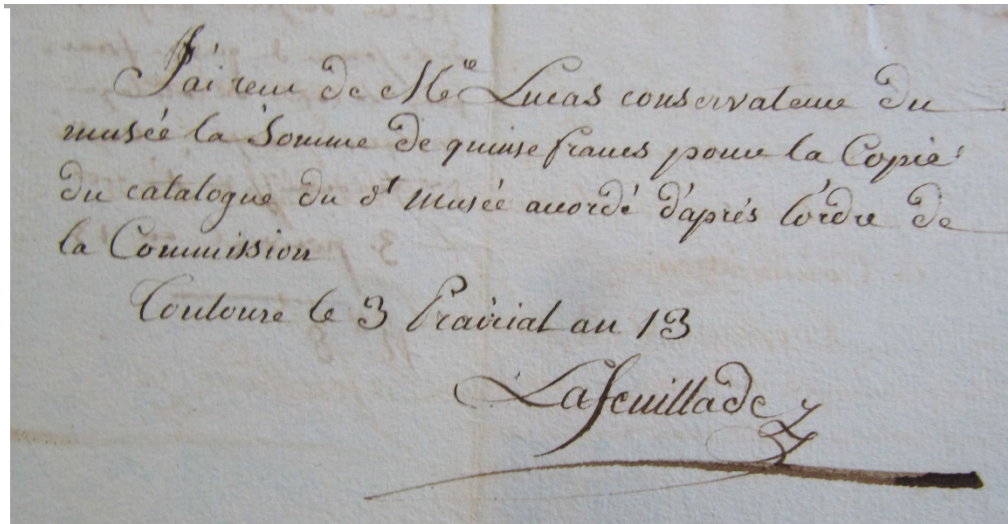 J'ai reçu de Mr Lucas conservateur du
musée la Somme de quinse francs pour la Copie
du catalogue du dt musée acordé d'après l'ordre de
la Commission
Toulouse le 3 Prairial an 13
Lafeuillade